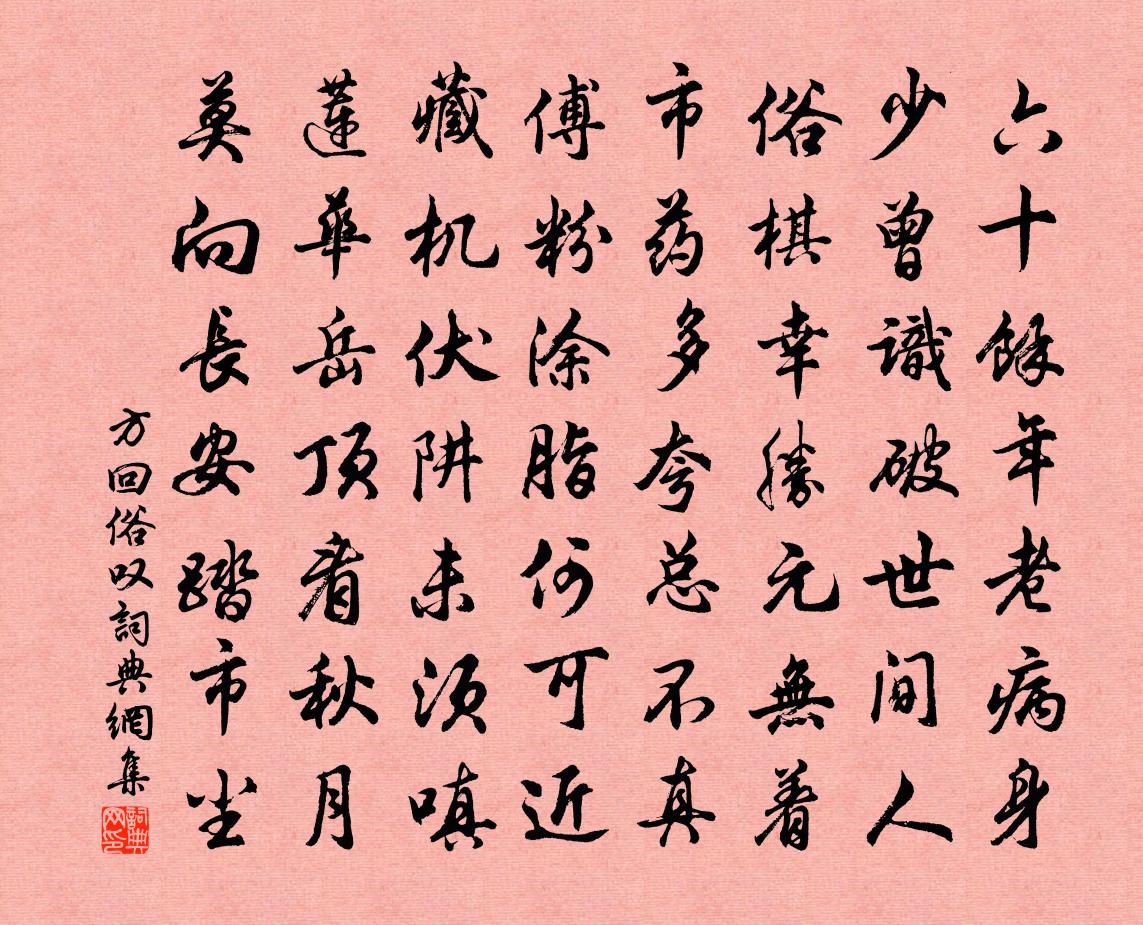 六十餘年老病身
少曾識破世间人
俗棋幸勝元無着
市药多夸总不真
傅粉涂脂何可近
藏机伏阱未须嗔
莲華岳顶看秋月
莫向長安踏市尘
方回俗叹詞典網集
詞典网印